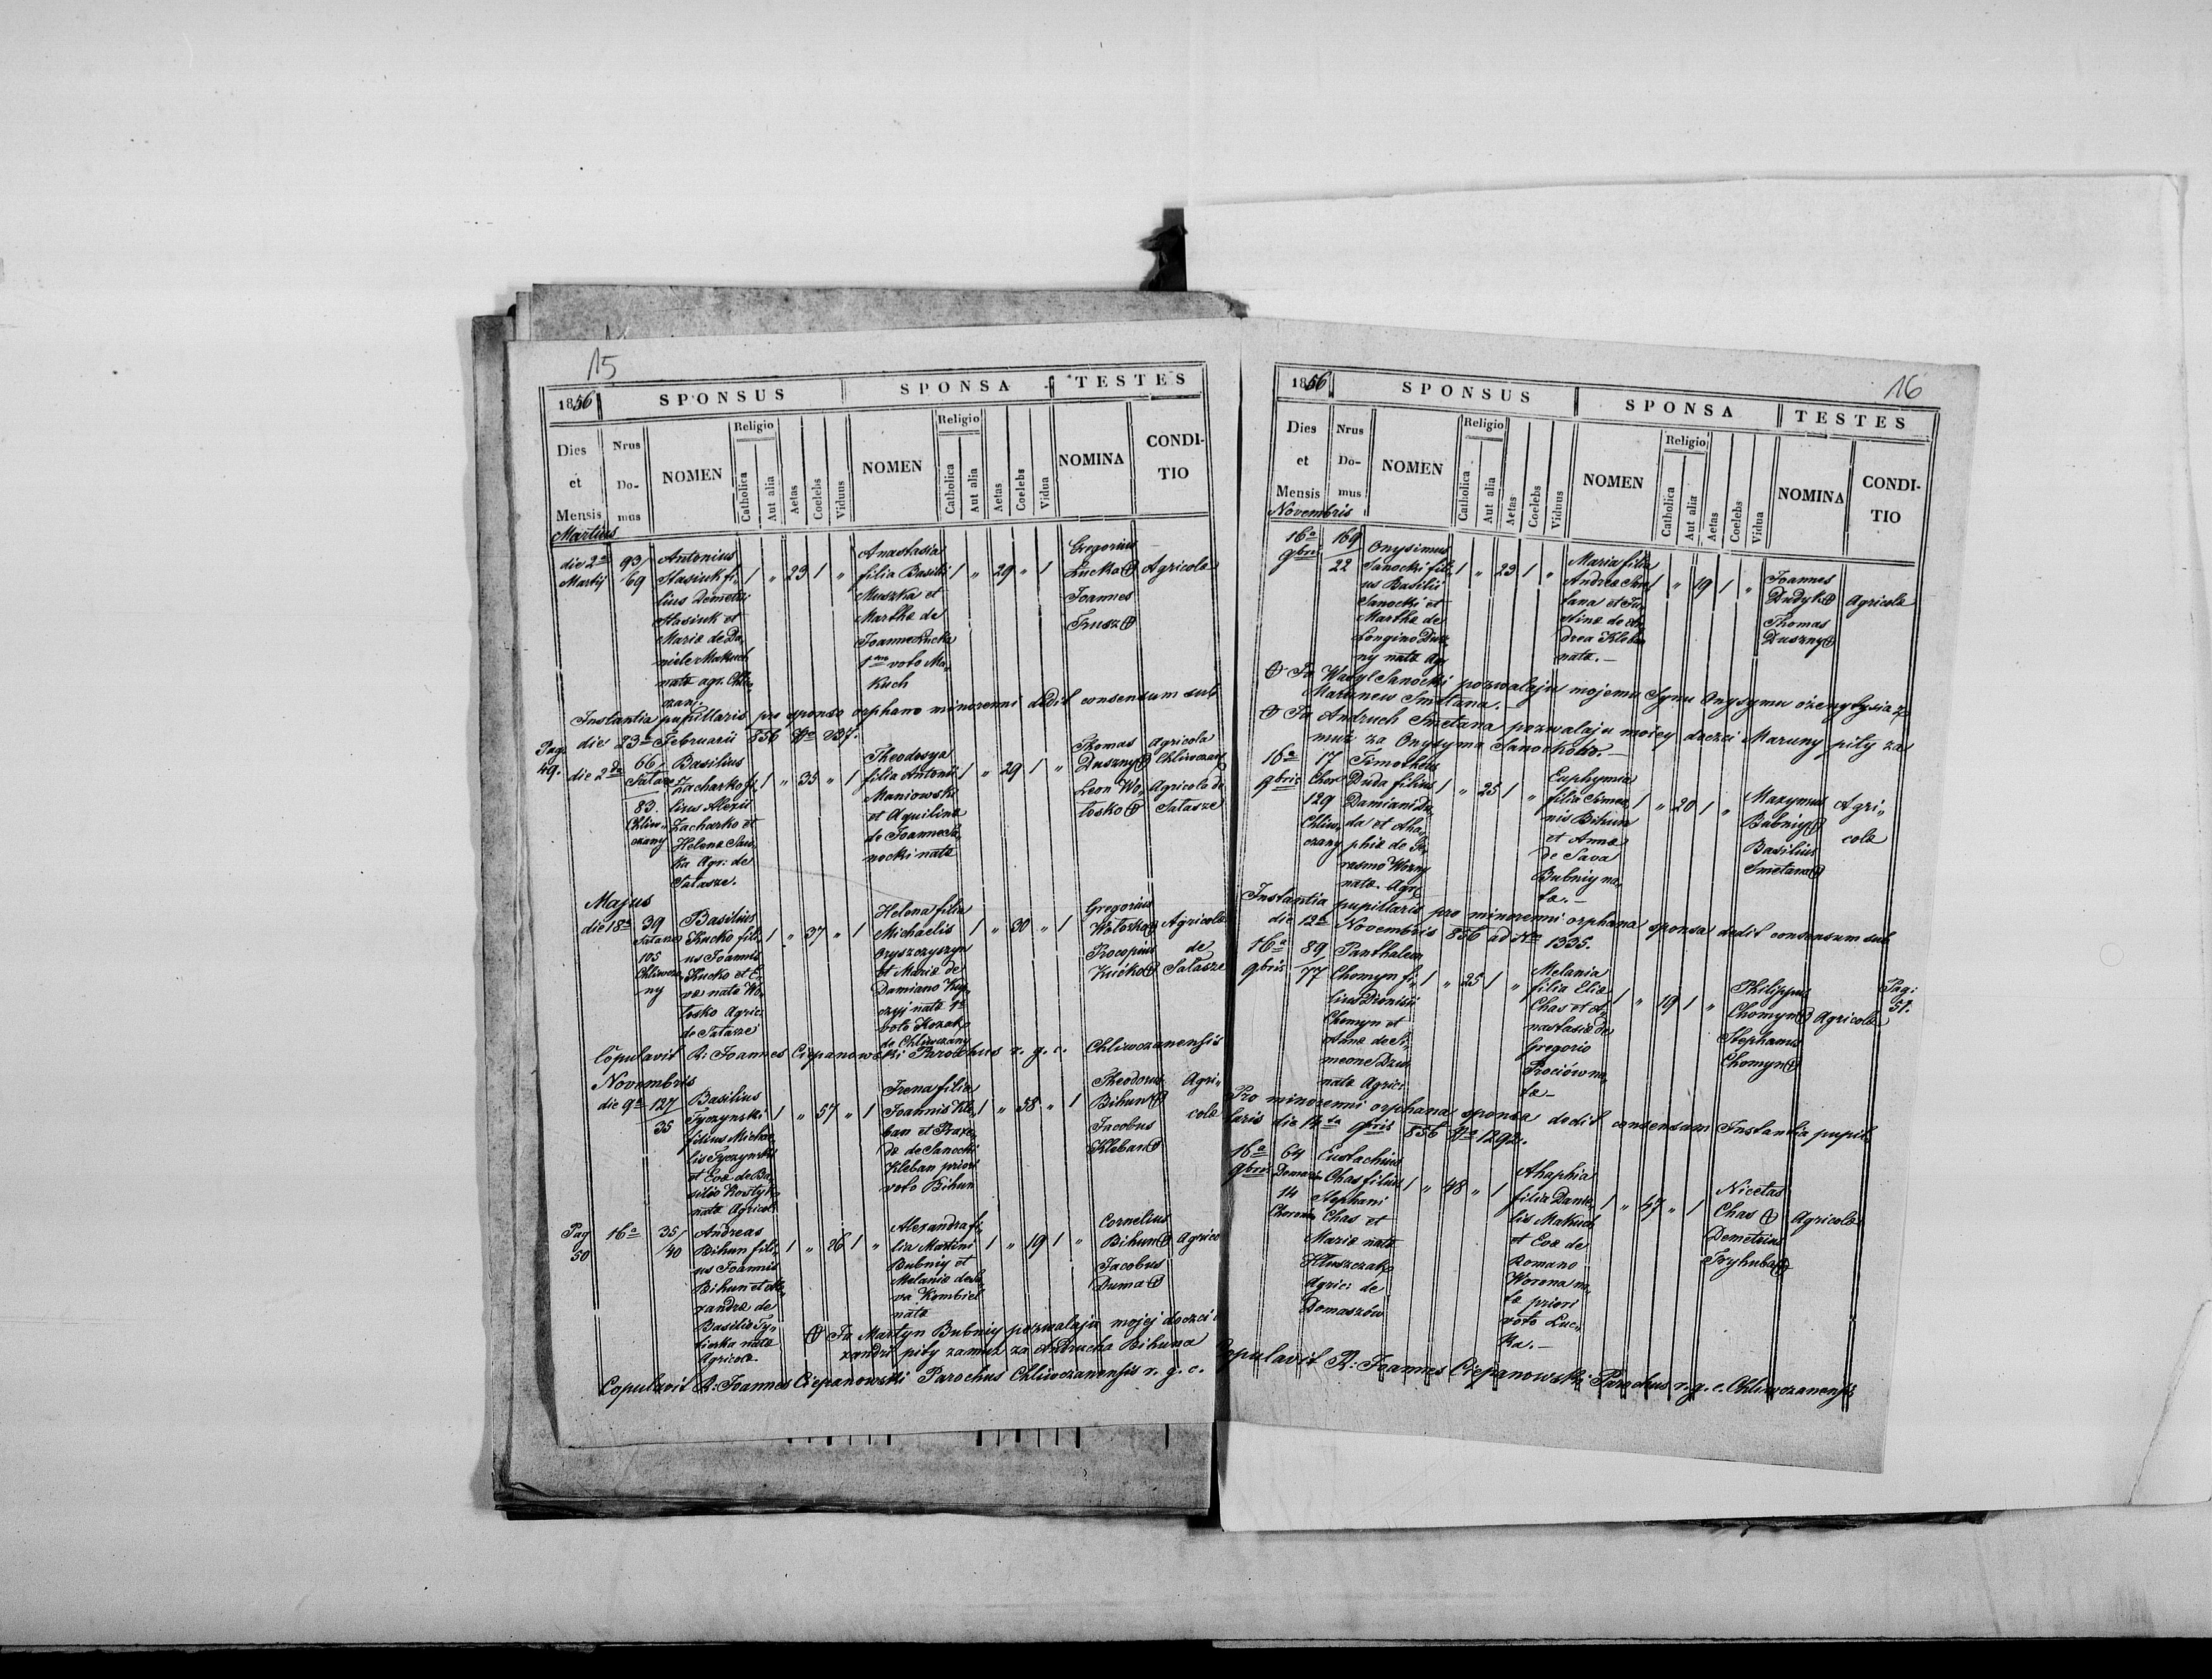 15
1856 SPONSUS SPONSA TESTES
Dies et Mensis
Nrus Domus
NOMEN
Religio
Catholica
Aut alia
Aetas
Coelebs
Viduus
NOMEN
Religio
Catholica
Aut alia
Aetas
Coelebs
Vidua
NOMINA
CONDI-
TIO
Martius
die 2a
Martij
93/
/69
Antonius
Stasiuk fi-
lius Demetri
Stasiuk et
Mariæ de Da-
niele Makuch
nata agr. Chli-
czani
1 " 23 1 "
Anastasia
filia Basilii
Muszka et
Marthæ de
Joanne Lucka
1mo voto Ma-
kuch
1 " 29 " 1
Gregorius
Lucka
Joannes
Trusz
Agricola
Instantia pupillaris pro sponso orphano minorenni dedit consensum sub
die 23a Februarii 856 No 237.
Pag:
49.
die 2da
66/
Sałasze
83.
Chliw-
czany
Basilius
Zacharko fi-
lius Alexii
Zacharko et
Helenæ Sau-
ka Agr: de
Sałasze.
1 " 35 " 1
Theodosya
filia Antonii
Maniowski
et Aquilinæ
de Joanne Sa-
nocki nata
1 " 29 1 "
Thomas
Duszny
Leon Wo-
łosko
Agricola
Chliwczany
Agricola de
Sałasze
Majus
die 18a
39
Sałasze
105
Chliwcza-
ny
Basilius
Kucko fili-
us Joannis
Kucko et E-
væ nata Wo-
łosko Agric:
de Sałasze
1 " 37 " 1
Helena filia
Michaelis
Oryszczyszyn
et Mariæ de
Damiano
nata 1o
voto Kozak
de Chliwczany
1 " 30 " 1
Gregorius
Wołoszko
Procopius
Kucko
Agricola
de
Sałasze
Copulavit R: Joannes Ciepanowski Parochus r. g. c. Chliwczanensis
Novembris
die 9a
127
/35
Basilius
Tyczynski
filius Micha-
lis Tyczynski
et Evæ de Ba-
silio Kostyk
nata Agricola
1 " 57 " 1
Irena filia
Joannis Kle-
ban et Praxe-
dæ de Sanocki
Kleban priori
voto Bihun
1 " 58 " 1
Theodorus
Bihun
Jacobus
Kleban
Agri-
cola
Pag
50
16a
35/
/40
Andreas
Bihun fili-
us Joannis
Bihun et Ale-
xandræ de
Basilio
nata
Agricola
1 " 26 1 "
Alexandra fi-
lia Martini
Bubniy et
Melaniæ de Sa-
va Kimbiel
nata
1 " 19 1 "
Cornelius
Bihun
Jacobus
Duma
Agrico
Ja Martyn Bubniy pozwalaju mojej doczci
xandri pity zamuż za Andrucha Bihuna
Copulavit R: Joannes Ciepanowski Parochus Chliwczanensis r. g. c.
16
1856 SPONSUS SPONSA TESTES
Dies et Mensis
Nrus Domus
NOMEN
Religio
Catholica
Aut alia
Aetas
Coelebs
Viduus
NOMEN
Religio
Catholica
Aut alia
Aetas
Coelebs
Vidua
NOMINA
CONDI-
TIO
Novembris
16a
9bris
169
22
Onysimus
Sanocki fili-
us Basilii
Sanocki et
Marthæ de
Longino Dusz-
ny nata Agr
1 " 23 1 "
Maria filia
Andreæ Sme-
tana et Ju-
stinæ de An-
drea Kleban
nata.
1 " 19 1 "
Joannes
Dudyk
Thomas
Duszny
Agricola
Ja Wasyl Sanocki pozwalaju mojemu Synu Onysymu ożenytysia z
Marunew Smetana.
Ja Andruch Smetana pozwalaju moiey doczci Maruny pity za
muż za Onysyma Sanockoho.
16a
9bris
17
Chor
129
Chliw-
czany
Timotheus
Duda filius
Damiani Du-
da et Aha-
phiæ de Ge-
rasmo Worny
nata Agri
1 " 25 1 "
Euphymia
filia Simeo-
nis Bihun
et Annæ
de Sava
Bubniy na-
ta.
1 " 20 1 "
Maxymus
Bubniy
Basilius
Smetana
Agri-
cola
Instantia pupillaris pro minorenni orphana sponsa dedit consensum sub
die 12a Novembris 856 ad Nro 1335.
16a
9bris
89
/77
Panthaleon
Chomyn fi-
lius Dionisii
Chomyn et
Annæ de Si-
meone
nata Agric:
1 " 25 1 "
Melania
filia Eliæ
Chas et A-
nastasiæ de
Gregorio
Prociów na-
ta
1 " 19 1 "
Philippus
Chomyn
Stephanus
Chomyn
Agricola
Pag:
51.
Pro minorenni orphana sponsa dedit consensum Instantia pupil-
laris die 12da 9bris 856 No 1292.
16a
9bris
64
Domasz
14
Eustachius
Chas filius
Stephani
Chas et
Mariæ nata
Hłuszczak
Agric: de
Domaszów
1 " 48 " 1
Ahaphia
filia Danie-
lis Makuch
et Evæ de
Romano
Worona na-
ta priori
voto Luc-
ka.
1 " 47 " 1
Nicetas
Chas
Demetrius
Tryhuba
Agricola
Copulavit R: Joannes Ciepanowski Parochus r. g. c. Chliwczanensis